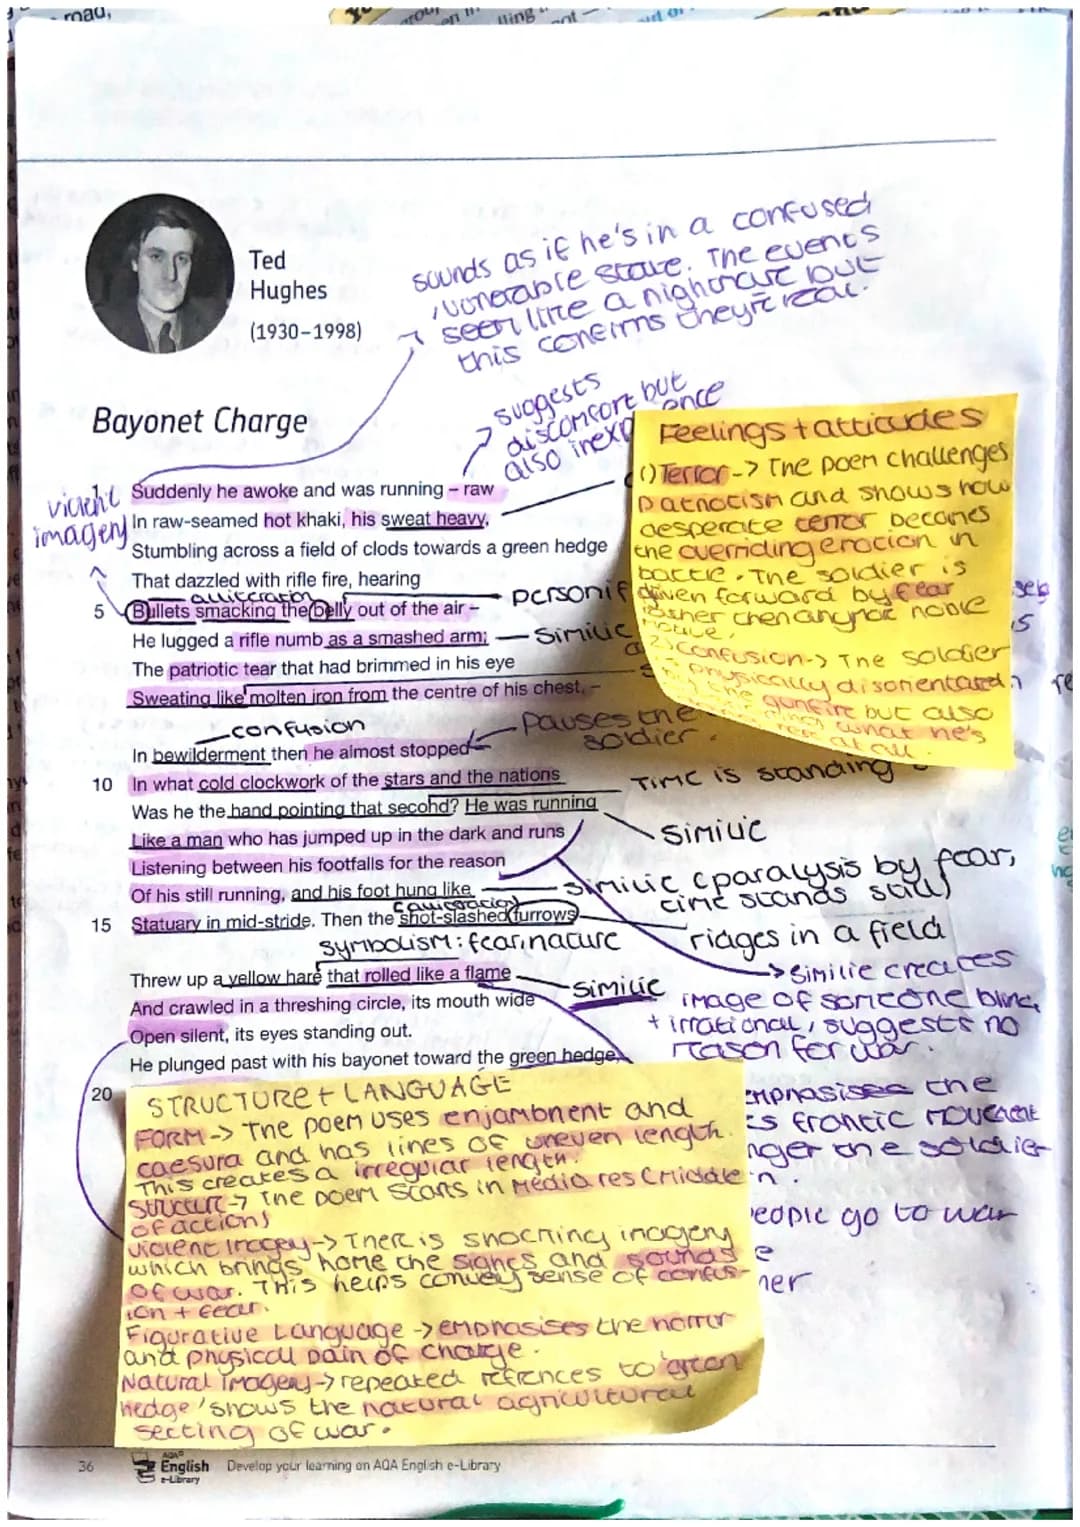 Ted
Hughes
(1930–1998)
sounds as if he's in a confused
vunerable state. The events
seem like a nightmare but
this confirms they're real.
Bayonet Charge
suggests
discomfort but
also inexp ence
violent
imagery
1 Suddenly he awoke and was running – raw
In raw-seamed hot khaki, his sweat heavy,
Stumbling across a field of clods towards a green hedge
That dazzled with rifle fire, hearing
alliteration
5 Bullets smacking the belly out of the air –
personif
He lugged a rifle numb as a smashed arm;
Similie
The patriotic tear that had brimmed in his eye
Sweating like molten iron from the centre of his chest, –
confusion
Pauses the
soldier.
In bewilderment then he almost stopped –
10 In what cold clockwork of the stars and the nations
Time is standing
Was he the hand pointing that second? He was running
Like a man who has jumped up in the dark and runs
Similie
Listening between his footfalls for the reason
Of his still running, and his foot hung like
Similie (paralysis by fear,
time stands still)
(alliteration)
15 Statuary in mid-stride. Then the shot-slashed furrows
ridges in a field
symbolism: fear, nature
Threw up a yellow hare that rolled like a flame
Similie
And crawled in a threshing circle, its mouth wide
Open silent, its eyes standing out.
He plunged past with his bayonet toward the green hedge,
20
Similie creates
image of someone blind,
+ irrational, suggests no
reason for war.
emphasises the
frantic movement
the soldier
people go to war
Feelings + attitudes
(1) Terror -> The poem challenges
patriotism and shows how
desperate terror becomes
the overriding emotion in
battle. The soldier is
driven forward by fear
rather than any noble
motive.
2) Confusion -> The soldier
is physically disorientated
the gunfire but also
what he's
at all.
STRUCTURE + LANGUAGE
FORM -> The poem uses enjambment and
caesura and has lines of uneven length.
This creates a irregular length.
Structure -> The poem starts in media res (middle
of action)
Violent Imagey -> There is shocking imagery
which brings home the sights and sounds
of war. This helps convey sense of confus-
ion + fear.
Figurative Language -> emphasises the horror
and physical pain of charge.
Natural Imagery -> repeated refrences to 'green
hedge' shows the natural agricultural
setting of war.
36
AQA
English
e-Library
Develop your learning on AQA English e-Library